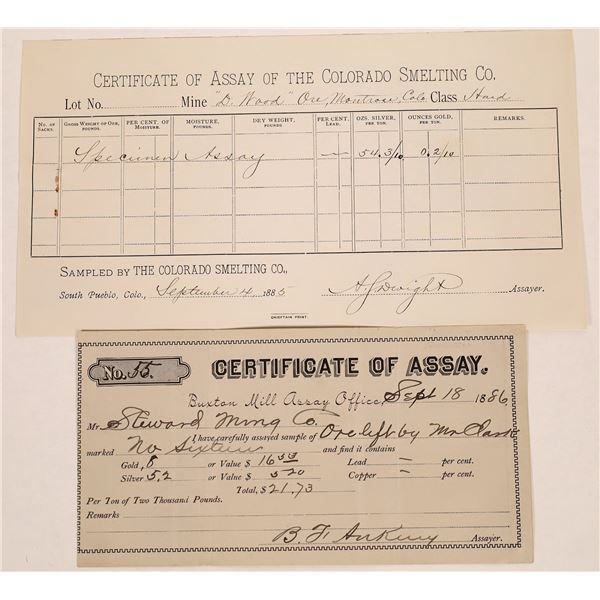 CERTIFICATE OF ASSAY OF THE COLORADO SMELTING CO.
Lot No. Mine "D. Wood" Ore, Montrose, Colo. Class Hard
No. of Sacks. Gross Weight of Ore, Pounds. Per Cent. of Moisture. Moisture, Pounds. Dry Weight, Pounds. Per Cent. Lead. Ozs. Silver, Per Ton. Ounces Gold, Per Ton. Remarks.
Specimen Assay — 54.3/10 0.2/10
SAMPLED BY THE COLORADO SMELTING CO.,
South Pueblo, Colo., September 4, 1885 Dwight Assayer.
CHIEFTAIN PRINT.
No. 55. CERTIFICATE OF ASSAY.
Buxton Mill Assay Office, Sept 18 1886
Mr Steward Mng Co.
I have carefully assayed sample of Ore left by Mr Clark
marked No Sixteen and find it contains
Gold, .8 or Value $ 16 53 Lead — per cent.
Silver 5.2 or Value $ 5 20 Copper — per cent.
Total, $21.73
Per Ton of Two Thousand Pounds.
Remarks
B. F. Ankeny Assayer.